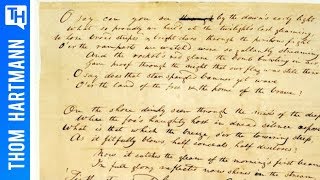 THOM HARTMANN
O say can you see through by the dawn's early light
What so proudly we hail'd at the twilight's last gleaming,
Whose broad stripes & bright stars through the perilous fight
O'er the ramparts we watch'd were so gallantly streaming?
And the rocket's red glare, the bomb bursting in air,
Gave proof through the night that our flag was still there
O say does that star-spangled banner yet wave
O'er the land of the free & the home of the brave?
On the shore dimly seen through the mists of the deep,
Where the foe's haughty host in dread silence reposes,
What is that which the breeze, o'er the towering steep,
As it fitfully blows, half conceals, half discloses?
Now it catches the gleam of the morning's first beam,
In full glory reflected now shines in the stream